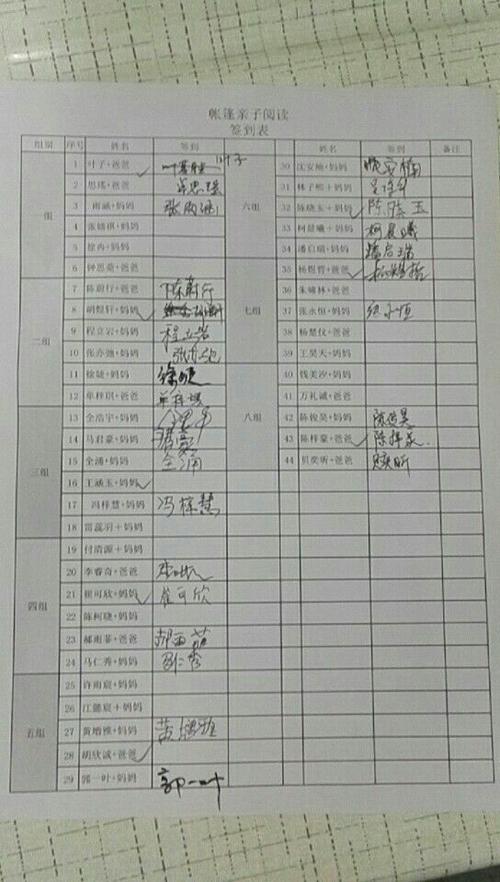 帐篷亲子阅读
签到表
组别 序号 姓名 签到 姓名 签到 备注
一组
1 叶子+爸爸 叶子
2 思瑶+爸爸
3 雨涵+妈妈 张雨涵
4 张婧祺+妈妈
5 徐冉+妈妈
6 钟思菀+爸爸
二组
7 陈蔚行+爸爸 陈蔚行
8 胡煜轩+妈妈
9 程立岩+妈妈 程立岩
10 张亦弛+妈妈 张亦弛
11 徐婕+妈妈 徐婕
12 牟梓琪+爸爸 牟梓琪
三组
13 仝浩宇+妈妈
14 马君豪+妈妈
15 仝涌+妈妈 仝涌
16 王涵玉+妈妈
17 冯梓慧+妈妈 冯梓慧
18 雷蕊羽+妈妈
四组
19 付清源+妈妈
20 李睿奇+爸爸
21 崔可欣+妈妈 崔可欣
22 陈柯晓+妈妈
23 郝雨菲+爸爸 郝雨菲
24 马仁秀+妈妈 马仁秀
五组
25 许雨宸+妈妈
26 江懿宸+妈妈
27 黄增雅+妈妈 黄增雅
28 胡欣诚+爸爸
29 郭一叶+妈妈 郭一叶
六组
30 沈安楠+妈妈
31 林子熙+妈妈
32 陈晓玉+妈妈 陈晓玉
33 柯晨曦+妈妈 柯晨曦
34 潘启瑞+妈妈 潘启瑞
七组
35 杨煜哲+爸爸
36 朱啸林+爸爸
37 张永恒+妈妈
38 杨楚仪+爸爸
39 王昊天+妈妈
八组
40 钱美汐+妈妈
41 万礼诚+爸爸
42 陈俊昊+妈妈 陈俊昊
43 陈梓豪+爸爸 陈梓豪
44 贝奕昕+爸爸